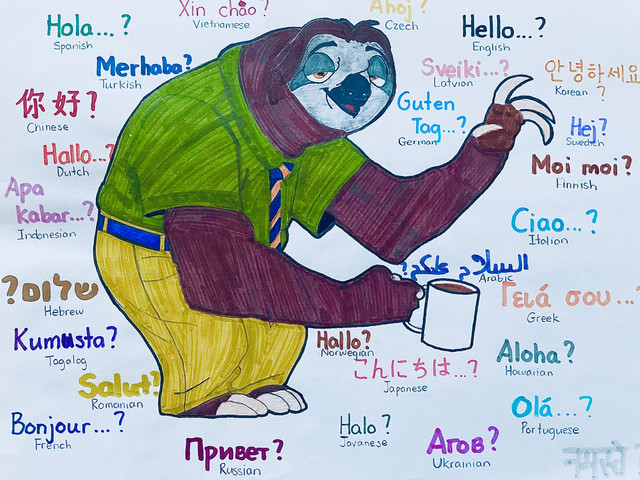 Xin chào?
Vietnamese
Ahoj?
Czech
Hola...?
Spanish
Hello...?
English
Merhaba?
Turkish
Sveiki...?
Latvian
안녕하세요
?
Korean
你好?
Chinese
Guten
Tag...?
German
Hej?
Swedish
Hallo...?
Dutch
Moi moi?
Finnish
Apa
kabar...?
Indonesian
Ciao...?
Italian
السلام عليكم?
Arabic
שלום?
Hebrew
Γειά σου...?
Greek
Kumusta?
Tagolog
Hallo?
Norwegian
Aloha?
Hawaiian
こんにちは...?
Japanese
Salut?
Romanian
Olá...?
Portuguese
Bonjour...?
French
Halo?
Javanese
Привет?
Russian
Агов?
Ukrainian
नमस्ते